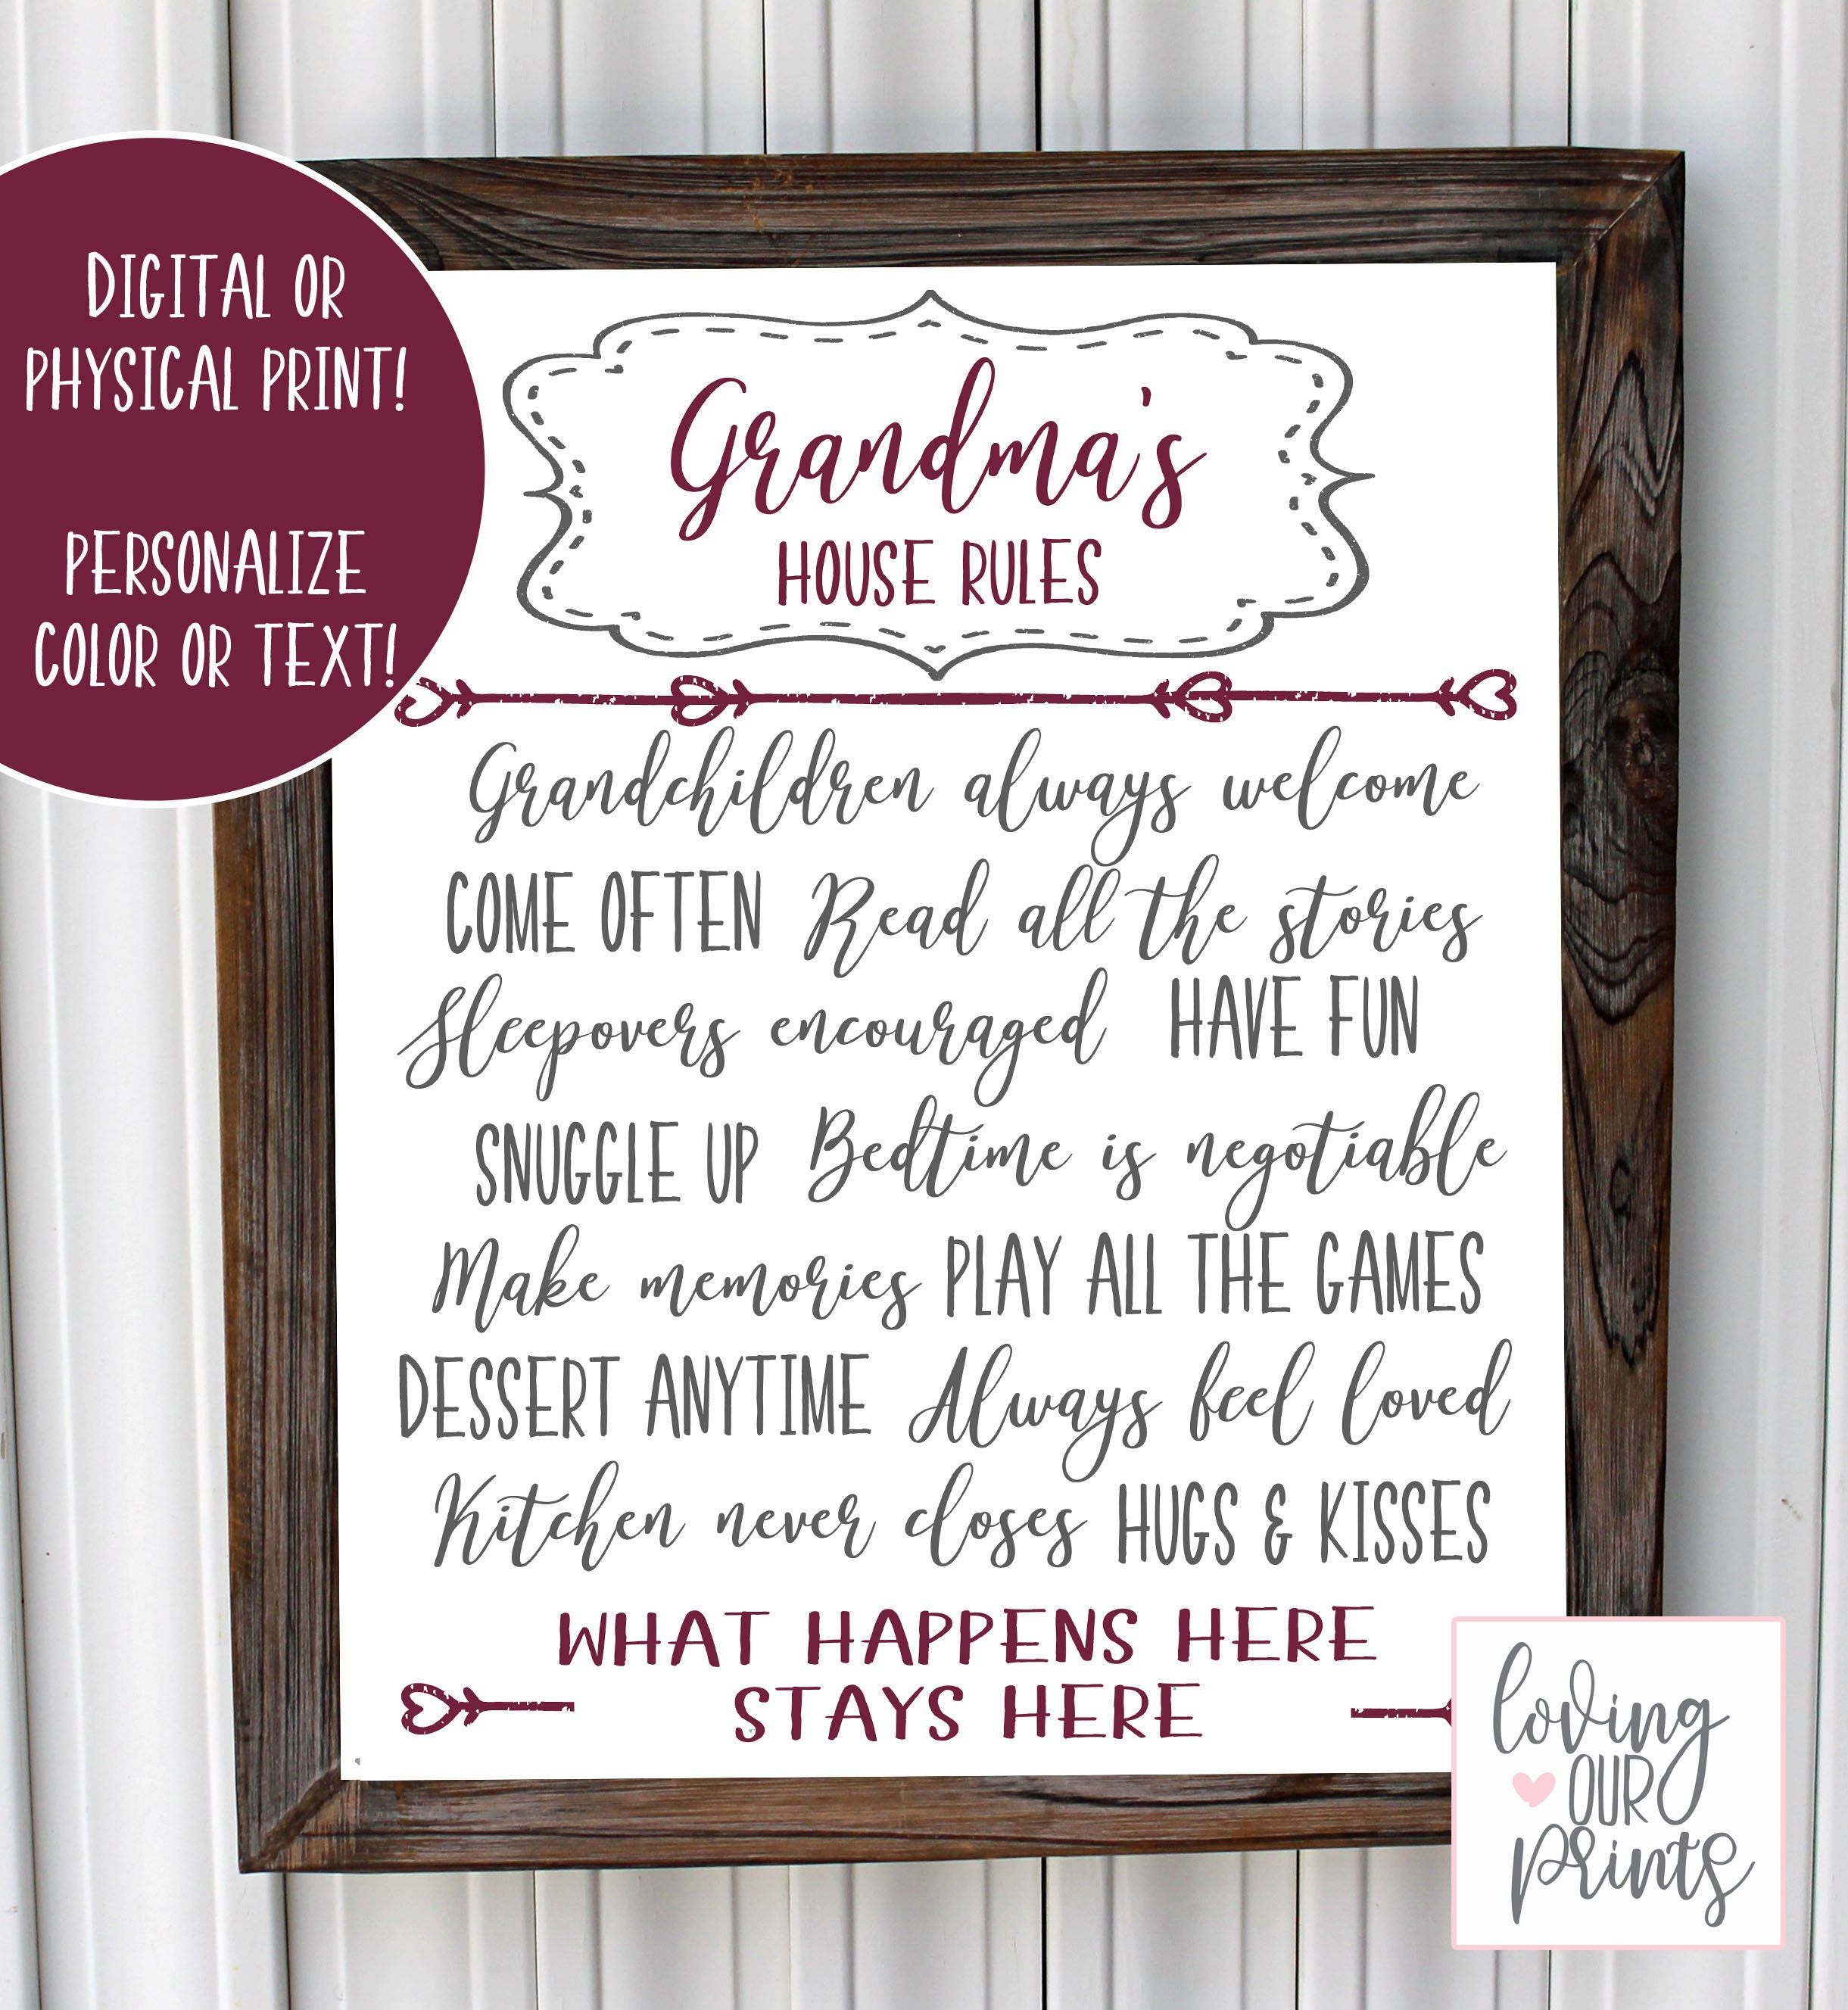 DIGITAL OR
PHYSICAL PRINT!
PERSONALIZE
COLOR OR TEXT!
Grandma's
HOUSE RULES
Grandchildren always welcome
COME OFTEN Read all the stories
Sleepovers encouraged HAVE FUN
SNUGGLE UP Bedtime is negotiable
Make memories PLAY ALL THE GAMES
DESSERT ANYTIME Always feel loved
Kitchen never closes HUGS & KISSES
WHAT HAPPENS HERE
STAYS HERE
loving
OUR
prints